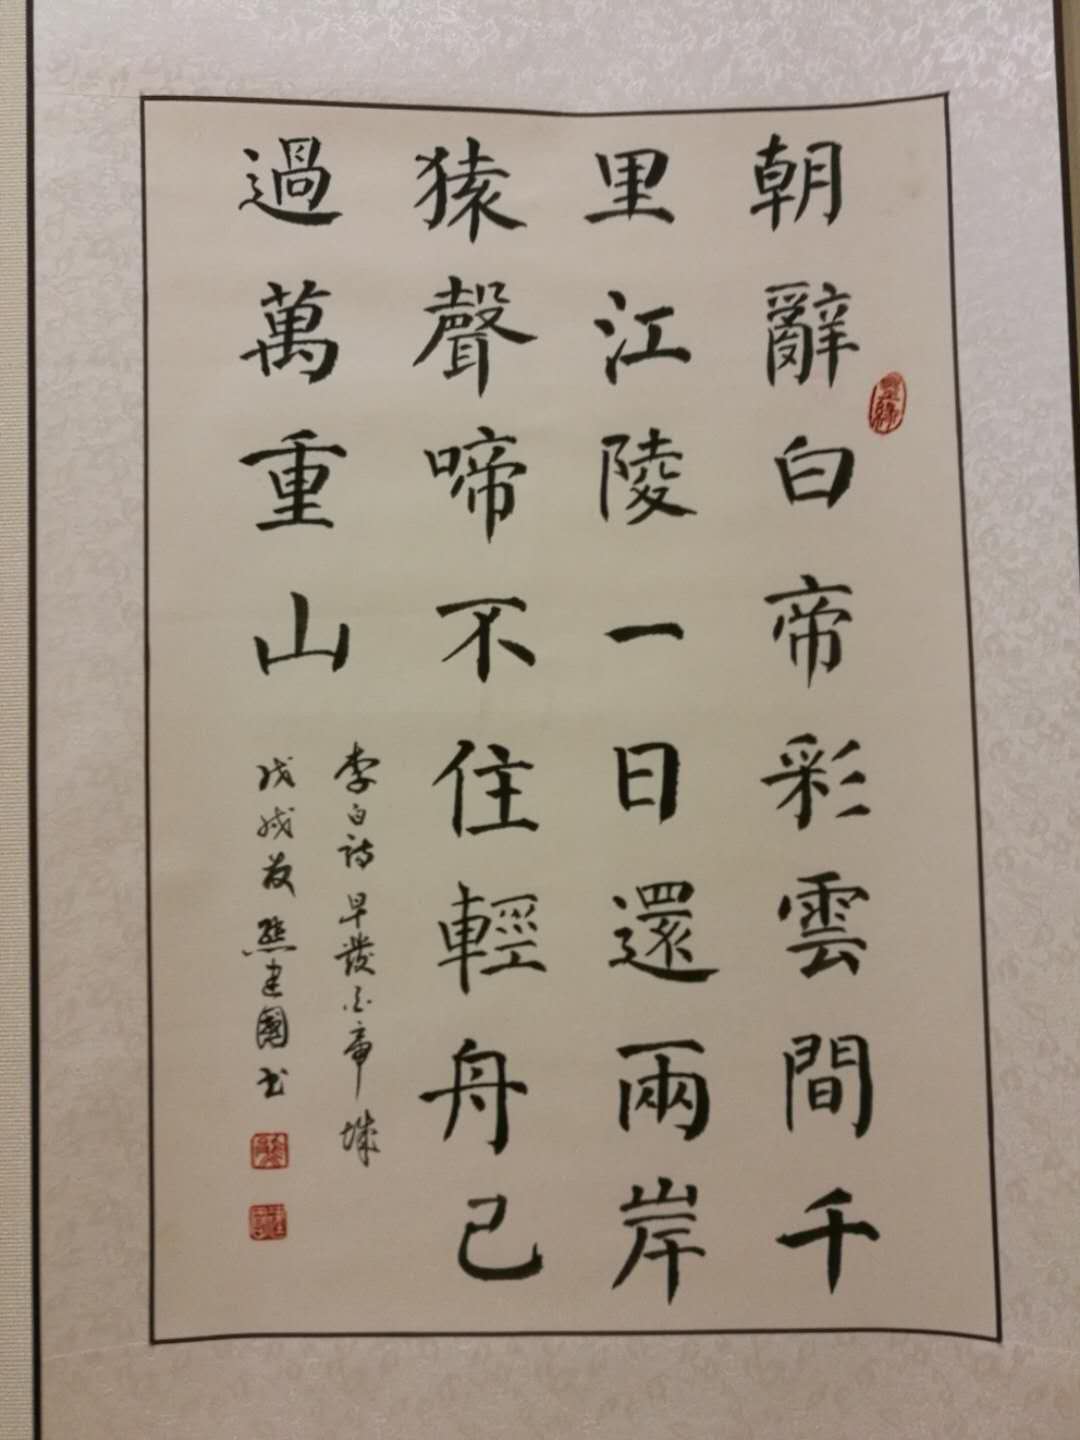 朝辭白帝彩雲間千
里江陵一日還兩岸
猿聲啼不住輕舟已
過萬重山
李白詩早發白帝城
戊戌夏熊建國书